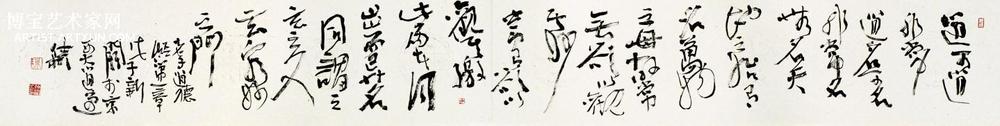 博宝艺术家网
ARTIST.ARTXUN.COM
道可道
非常
道名可名
非常名
无名天
地之始有
名萬物
之母故常
無欲以觀
其妙
常有欲以
觀其徼
此两者同
出而异名
同謂之
玄玄之又
玄众妙
之門
老子道德
經第一章
戊子新